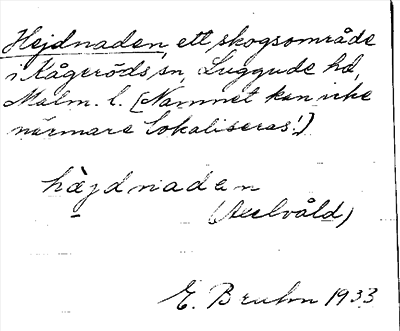 Hejdnaden, ett skogsområde
i Kågeröds sn, Luggude hd,
Malm. l. [Namnet kan icke
närmare lokaliseras!]
hejdnaden
E. Bruhn 1933